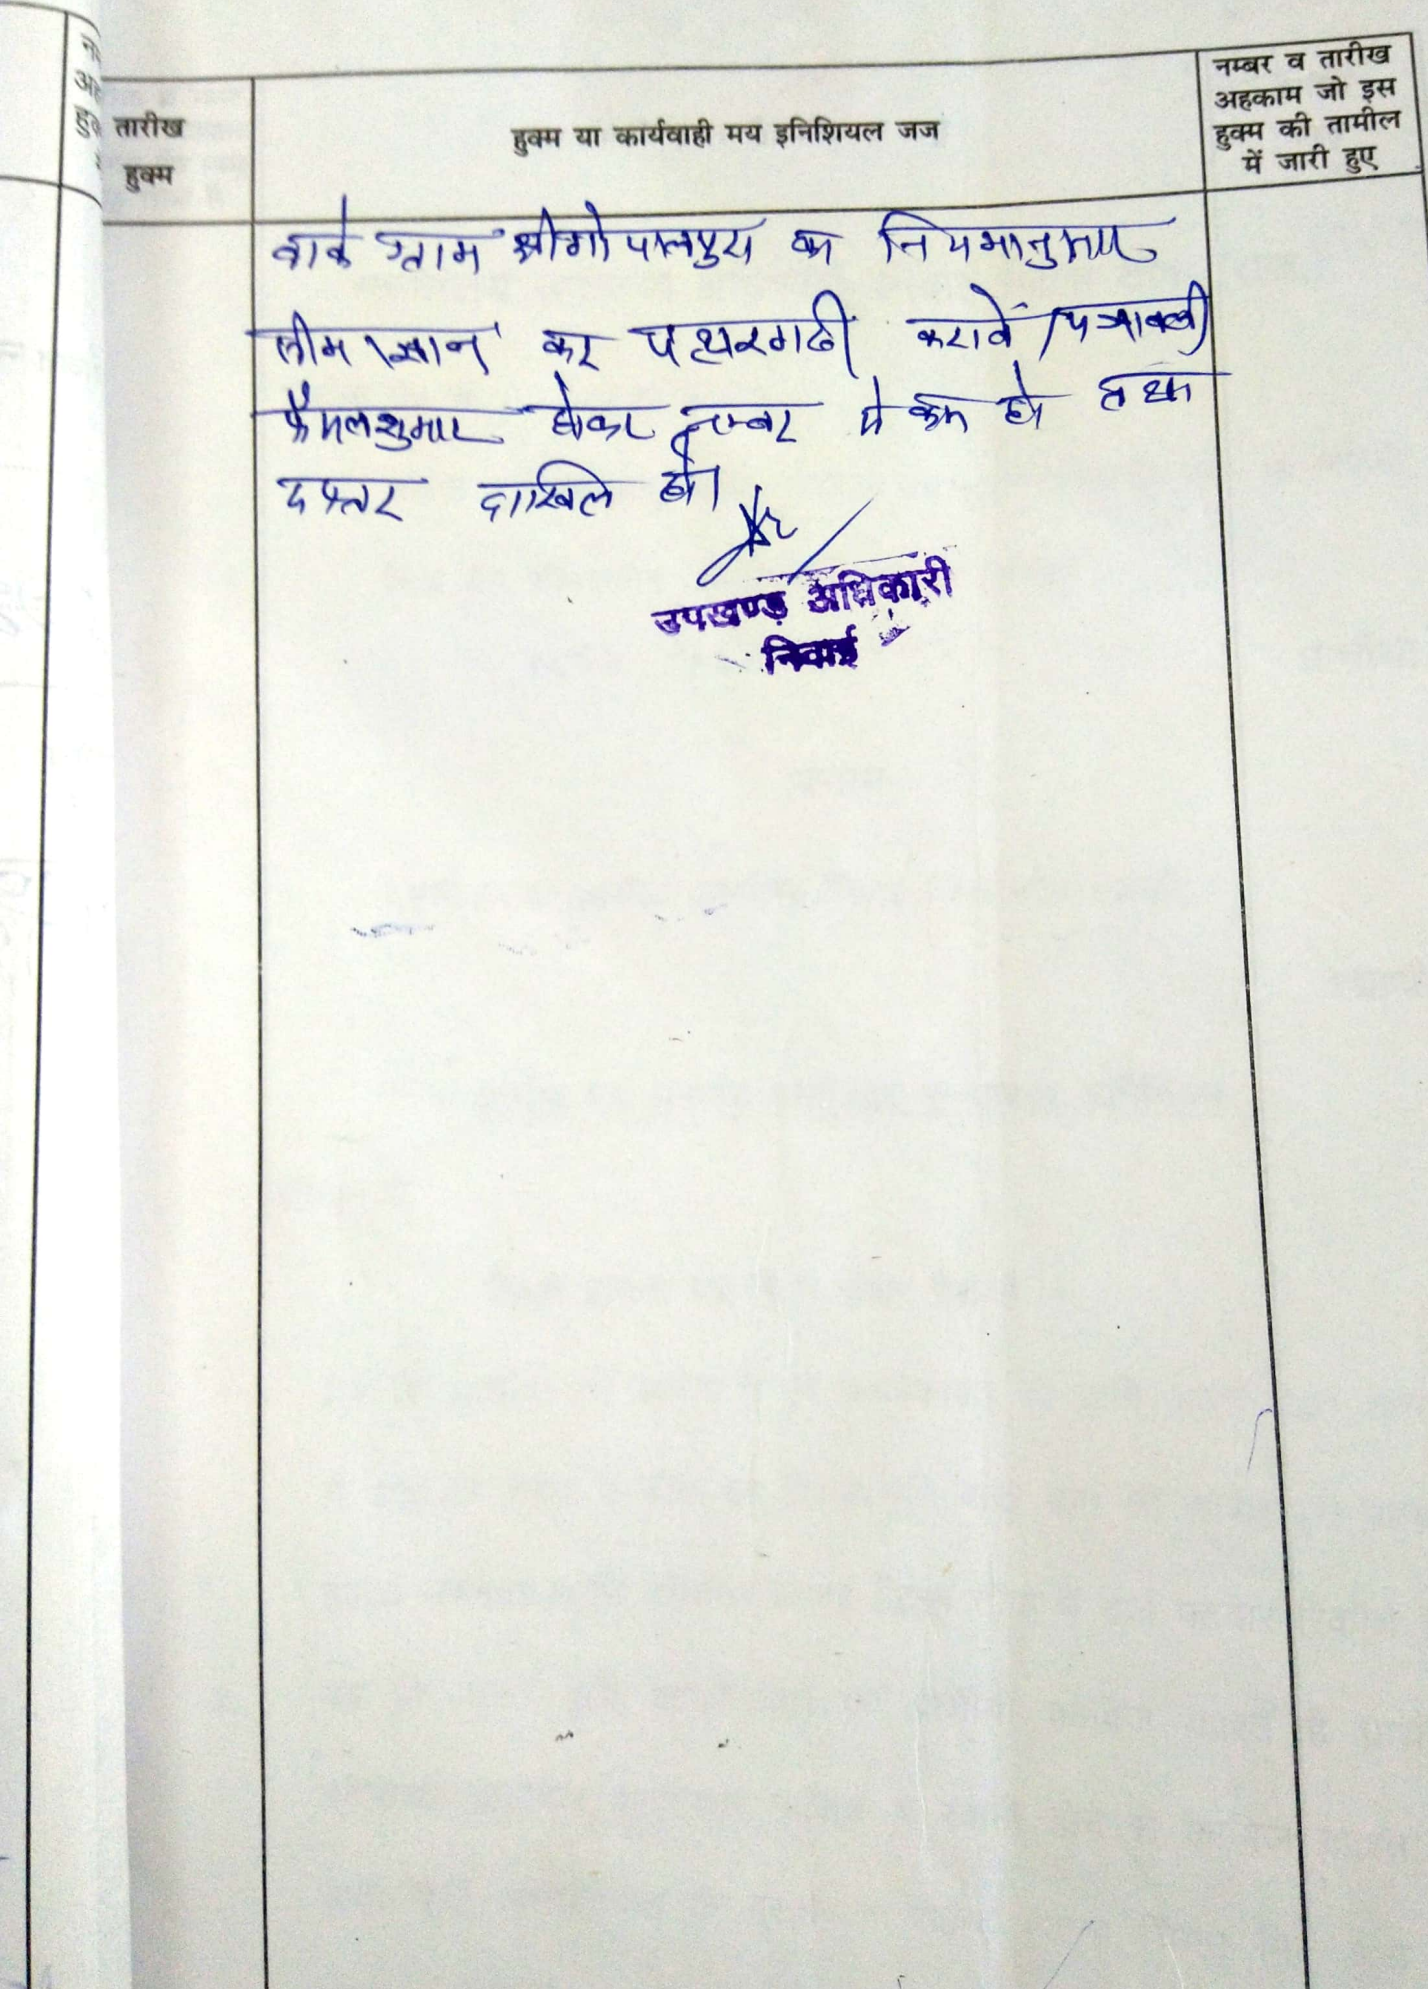 तारीख
हुक्म
हुक्म या कार्यवाही मय इनिशियल जज
नम्बर व तारीख
अहकाम जो इस
हुक्म की तामील
में जारी हुए
वाके ग्राम श्रीगोपालपुरा का नियमानुसार
सीमाज्ञान कर पत्थरगढी करावें। पत्रावली
फैसलशुमार होकर नम्बर से कम हो तथा
दफ्तर दाखिल हो।
उपखण्ड अधिकारी
निवाई